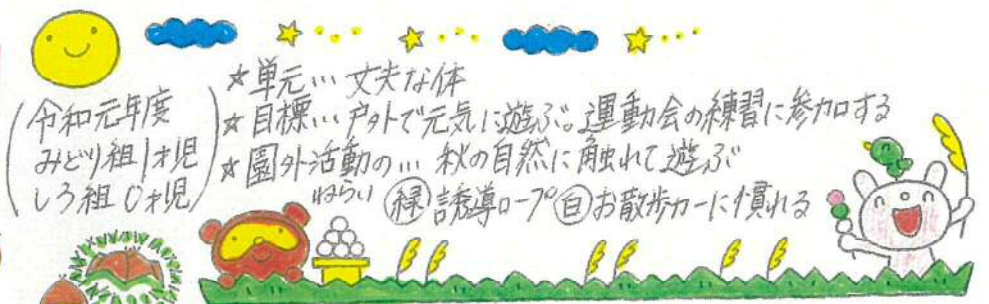 令和元年度
みどり組1才児
しろ組0才児
☆単元… 丈夫な体
☆目標… 戸外で元気に遊ぶ。運動会の練習に参加する
☆園外活動の… 秋の自然に触れて遊ぶ
ねらい ㊗緑 誘導ロープ 白 お散歩カーに慣れる